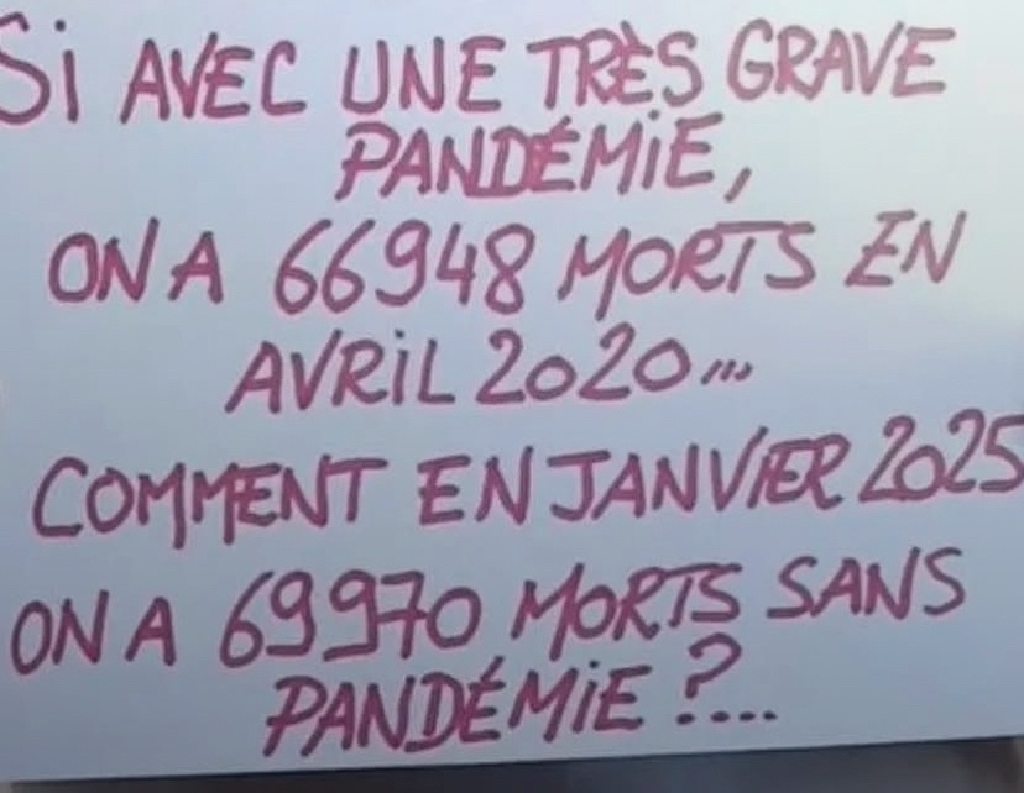 Si AVEC UNE TRÈS GRAVE
PANDÉMiE,
ON A 66948 MORTS EN
AVRiL 2020...
COMMENT EN JANViER 2025
ON A 69970 MORTS SANS
PANDÉMiE ?....